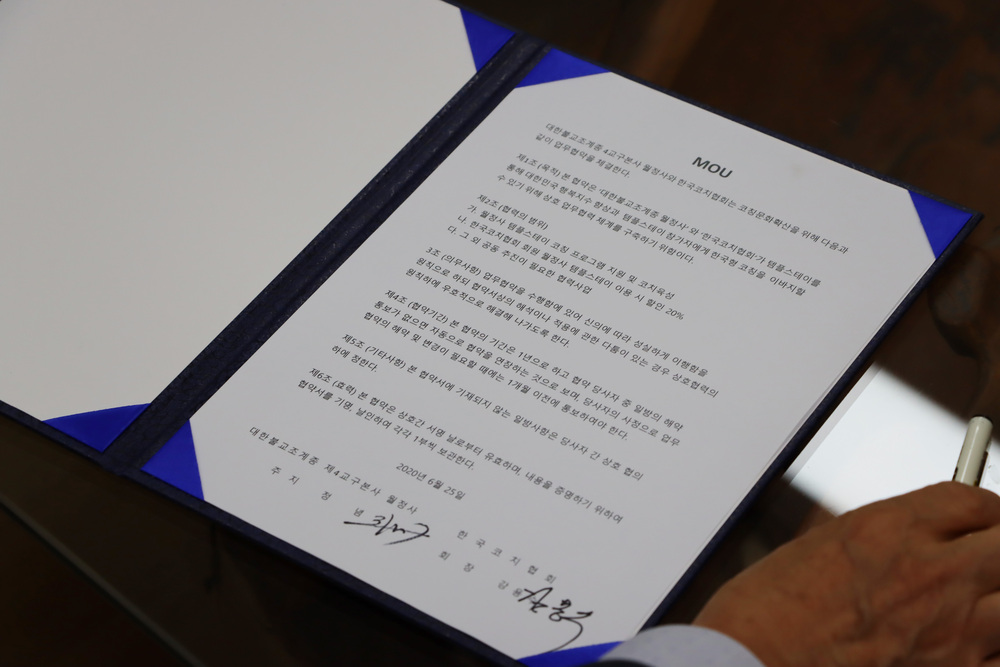 MOU
대한불교조계종 4교구본사 월정사와 한국코치협회는 코칭문화확산을 위해 다음과
같이 업무협약을 체결한다.
제1조 (목적) 본 협약은 '대한불교조계종 월정사' 와 '한국코치협회'가 템플스테이를
통해 대한민국 행복지수 향상과 템플스테이 참가자에게 한국형 코칭을 이바지할
수 있기 위해 상호 업무협력 체계를 구축하기 위함이다.
제2조 (협력의 범위)
가. 월정사 템플스테이 코칭 프로그램 지원 및 코치육성
나. 한국코치협회 회원 월정사 템플스테이 이용 시 할인 20%
다. 그 외 공동 추진이 필요한 협력사업
3조 (의무사항) 업무협약을 수행함에 있어 신의에 따라 성실하게 이행함을
원칙으로 하되 협약서상의 해석이나 적용에 관한 다툼이 있는 경우 상호협력의
원칙하에 우호적으로 해결해 나가도록 한다.
제4조 (협약기간) 본 협약의 기간은 1년으로 하고 협약 당사자 중 일방의 해약
통보가 없으면 자동으로 협약을 연장하는 것으로 보며, 당사자의 사정으로 업무
협약의 해약 및 변경이 필요할 때에는 1개월 이전에 통보하여야 한다.
제5조 (기타사항) 본 협약서에 기재되지 않는 일방사항은 당사자 간 상호 협의
하에 정한다.
제6조 (효력) 본 협약은 상호간 서명 날로부터 유효하며, 내용을 증명하기 위하여
협약서를 기명, 날인하여 각각 1부씩 보관한다.
2020년 6월 25일
대한불교조계종 제4교구본사 월정사
주 지 정 념
한 국 코 치 협 회
회 장 강 용